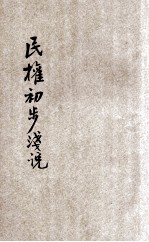 民權初步淺説